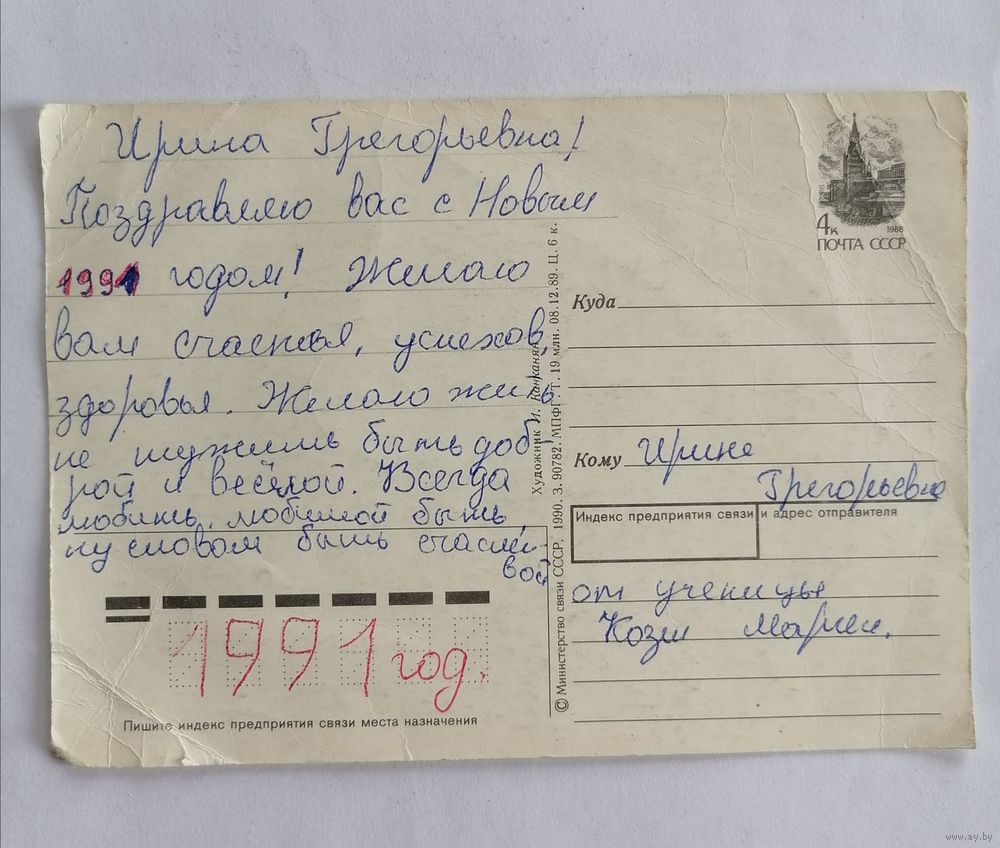 Ирина Григорьевна!
Поздравляю вас с Новым
1991 годом! Желаю
вам счастья, успехов,
здоровья. Желаю жить,
не тужить быть доб-
рой и весёлой. Всегда
любить, любимой быть,
ну словом быть счастли-
вой
1991 год.
Пишите индекс предприятия связи места назначения
© Министерство связи СССР, 1990. З. 90782. МПФГ. Т. 19 млн. 08.12.89. Ц. 6 к.
Художник И.
4к
1988
ПОЧТА СССР
Куда
Кому Ирине
Григорьевне
Индекс предприятия связи и адрес отправителя
от ученицы
Марии.
www.ay.by